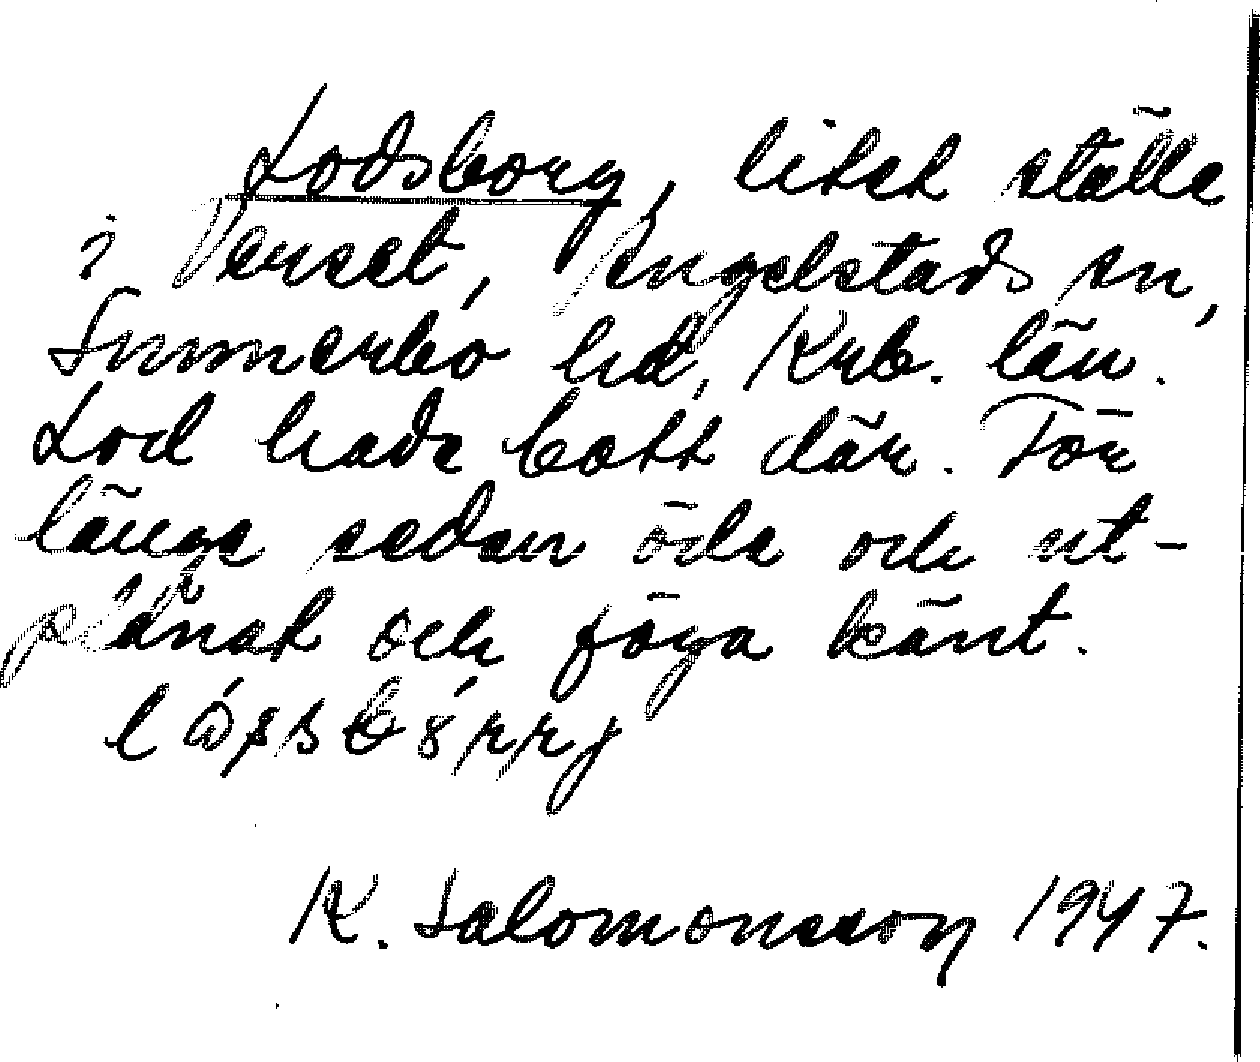 Lodsborg, litet ställe
i Verset, Ängelstads sn,
Sunnerbo hd, Krb. län.
Lod hade bott där. För
länge sedan öde och ut-
plånat och föga känt.
K. Salomonsson 1947.